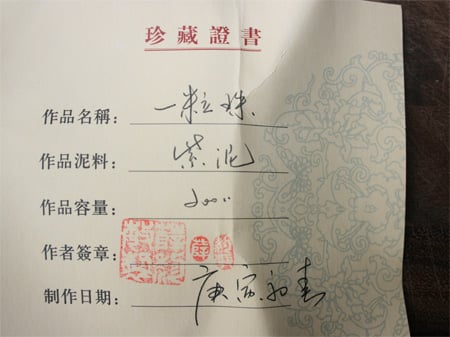 珍藏證書
作品名稱：一粒珠
作品泥料：紫泥
作品容量：200cc
作者簽章：
制作日期：庚寅初春